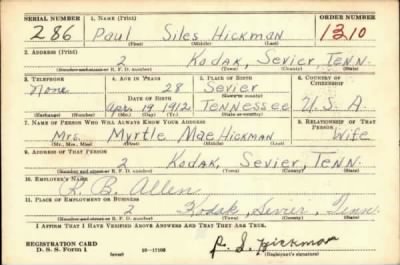 SERIAL NUMBER 1. NAME (Print) ORDER NUMBER
286 Paul Siles Hickman 1310
(First) (Middle) (Last)
2. ADDRESS (Print)
2 Kodak, Sevier, Tenn.
(Number and street or R. F. D. number) (Town) (County) (State)
3. TELEPHONE 4. AGE IN YEARS 5. PLACE OF BIRTH 6. COUNTRY OF CITIZENSHIP
None 28 Sevier
DATE OF BIRTH (Town or county)
Apr. 19 1912 Tennessee U. S. A.
(Exchange) (Number) (Mo.) (Day) (Yr.) (State or country)
7. NAME OF PERSON WHO WILL ALWAYS KNOW YOUR ADDRESS 8. RELATIONSHIP OF THAT PERSON
Mrs. Myrtle Mae Hickman Wife
(Mr., Mrs., Miss) (First) (Middle) (Last)
9. ADDRESS OF THAT PERSON
2 Kodak, Sevier, Tenn.
(Number and street or R. F. D. number) (Town) (County) (State)
10. EMPLOYER'S NAME
R. B. Allen
11. PLACE OF EMPLOYMENT OR BUSINESS
2 Kodak, Sevier, Tenn
(Number and street or R. F. D. number) (Town) (County) (State)
I AFFIRM THAT I HAVE VERIFIED ABOVE ANSWERS AND THAT THEY ARE TRUE.
REGISTRATION CARD
D. S. S. Form 1 P. S. Hickman
(Registrant's signature)